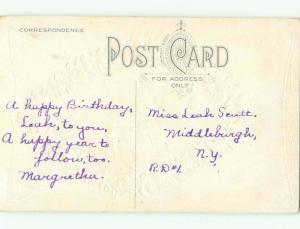 CORRESPONDENCE
POST CARD
FOR ADDRESS
ONLY
A happy Birthday,
Leah, to you,
A happy year to
follow, too.
Margretha.
Miss Leah
Middleburgh,
N.Y.
R.D#1